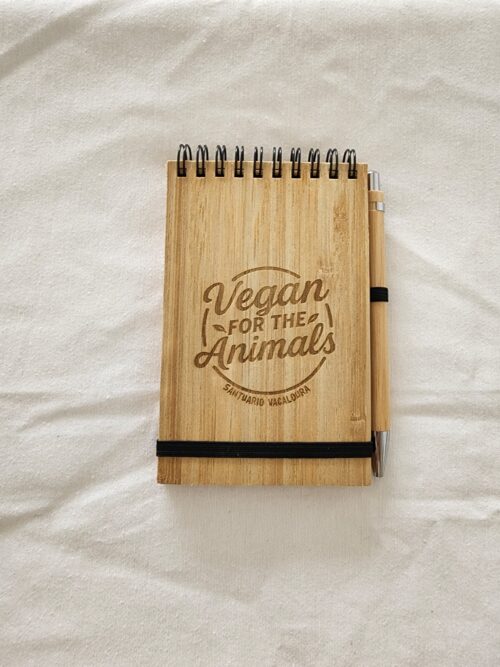 Vegan
FOR THE
Animals
SANTUARIO VACALOURA